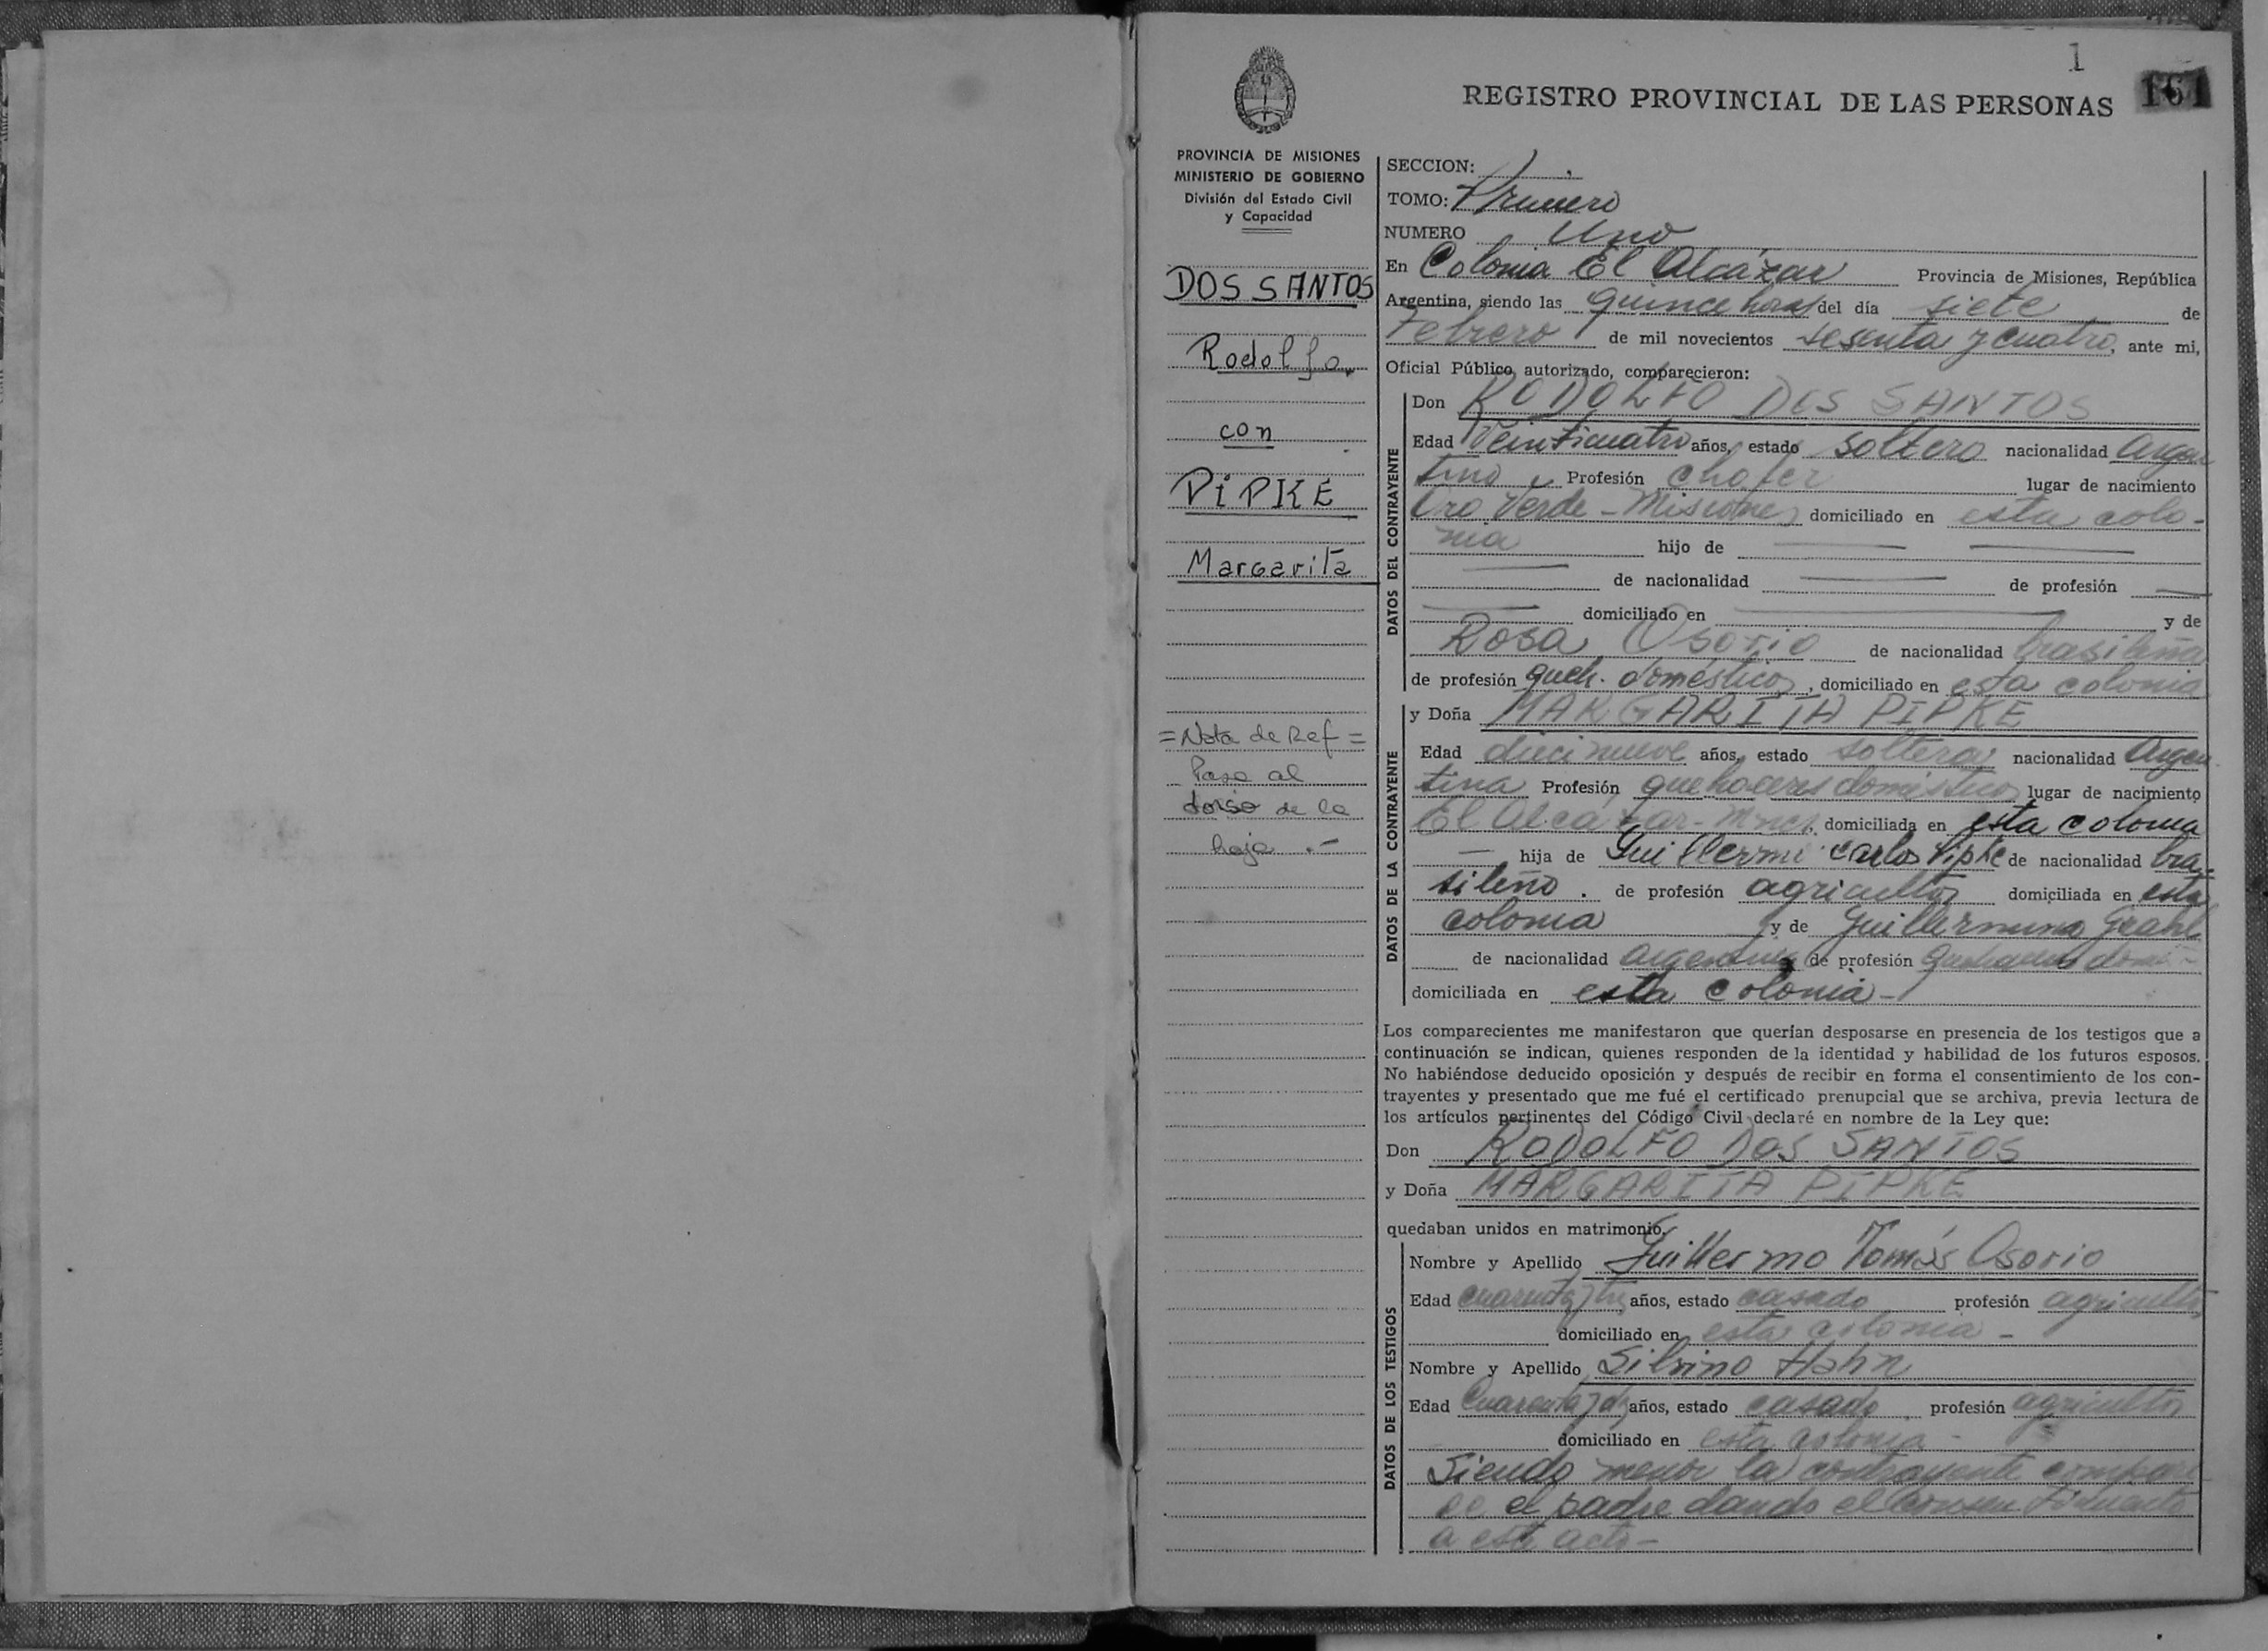 1
161
REGISTRO PROVINCIAL DE LAS PERSONAS
PROVINCIA DE MISIONES
MINISTERIO DE GOBIERNO
División del Estado Civil
y Capacidad
DOS SANTOS
Rodolfo
con
PIPKE
Margarita
=Nota de Ref=
Pasa al
dorso de la
hoja .-
SECCION:
TOMO: Primero
NUMERO Uno
En Colonia El Alcázar Provincia de Misiones, República
Argentina, siendo las quince horas del día siete de
Febrero de mil novecientos sesenta y cuatro, ante mi,
Oficial Público autorizado, comparecieron:
DATOS DEL CONTRAYENTE
Don RODOLFO DOS SANTOS
Edad Veinticuatro años, estado soltero nacionalidad argen
tino Profesión chofer lugar de nacimiento
Oro Verde - Misiones domiciliado en esta colo-
nia hijo de
de nacionalidad de profesión
domiciliado en y de
Rosa Osorio de nacionalidad brasileña
de profesión queh. domésticos, domiciliado en esta colonia
DATOS DE LA CONTRAYENTE
y Doña MARGARITA PIPKE
Edad diecinueve años, estado soltera nacionalidad Argen
tina Profesión quehaceres domésticos lugar de nacimiento
El Alcázar - Mnes, domiciliada en esta colonia
hija de Guillermo Carlos Pipke de nacionalidad bra-
sileño. de profesión agricultor domiciliada en esta
colonia y de Guillermina
de nacionalidad argentina de profesión quehaceres domé-
domiciliada en esta colonia-
Los comparecientes me manifestaron que querían desposarse en presencia de los testigos que a
continuación se indican, quienes responden de la identidad y habilidad de los futuros esposos.
No habiéndose deducido oposición y después de recibir en forma el consentimiento de los con-
trayentes y presentado que me fué el certificado prenupcial que se archiva, previa lectura de
los artículos pertinentes del Código Civil declaré en nombre de la Ley que:
Don RODOLFO DOS SANTOS
y Doña MARGARITA PIPKE
quedaban unidos en matrimonio.
DATOS DE LOS TESTIGOS
Nombre y Apellido Guillermo Tomás Osorio
Edad cuarenta y años, estado casado profesión agricultor
domiciliado en esta colonia -
Nombre y Apellido Silvino Hahn
Edad Cuarenta y años, estado casado profesión agricultor
domiciliado en esta colonia -
Siendo menor la contrayente compare
ce el padre dando el consentimiento
a este acto-